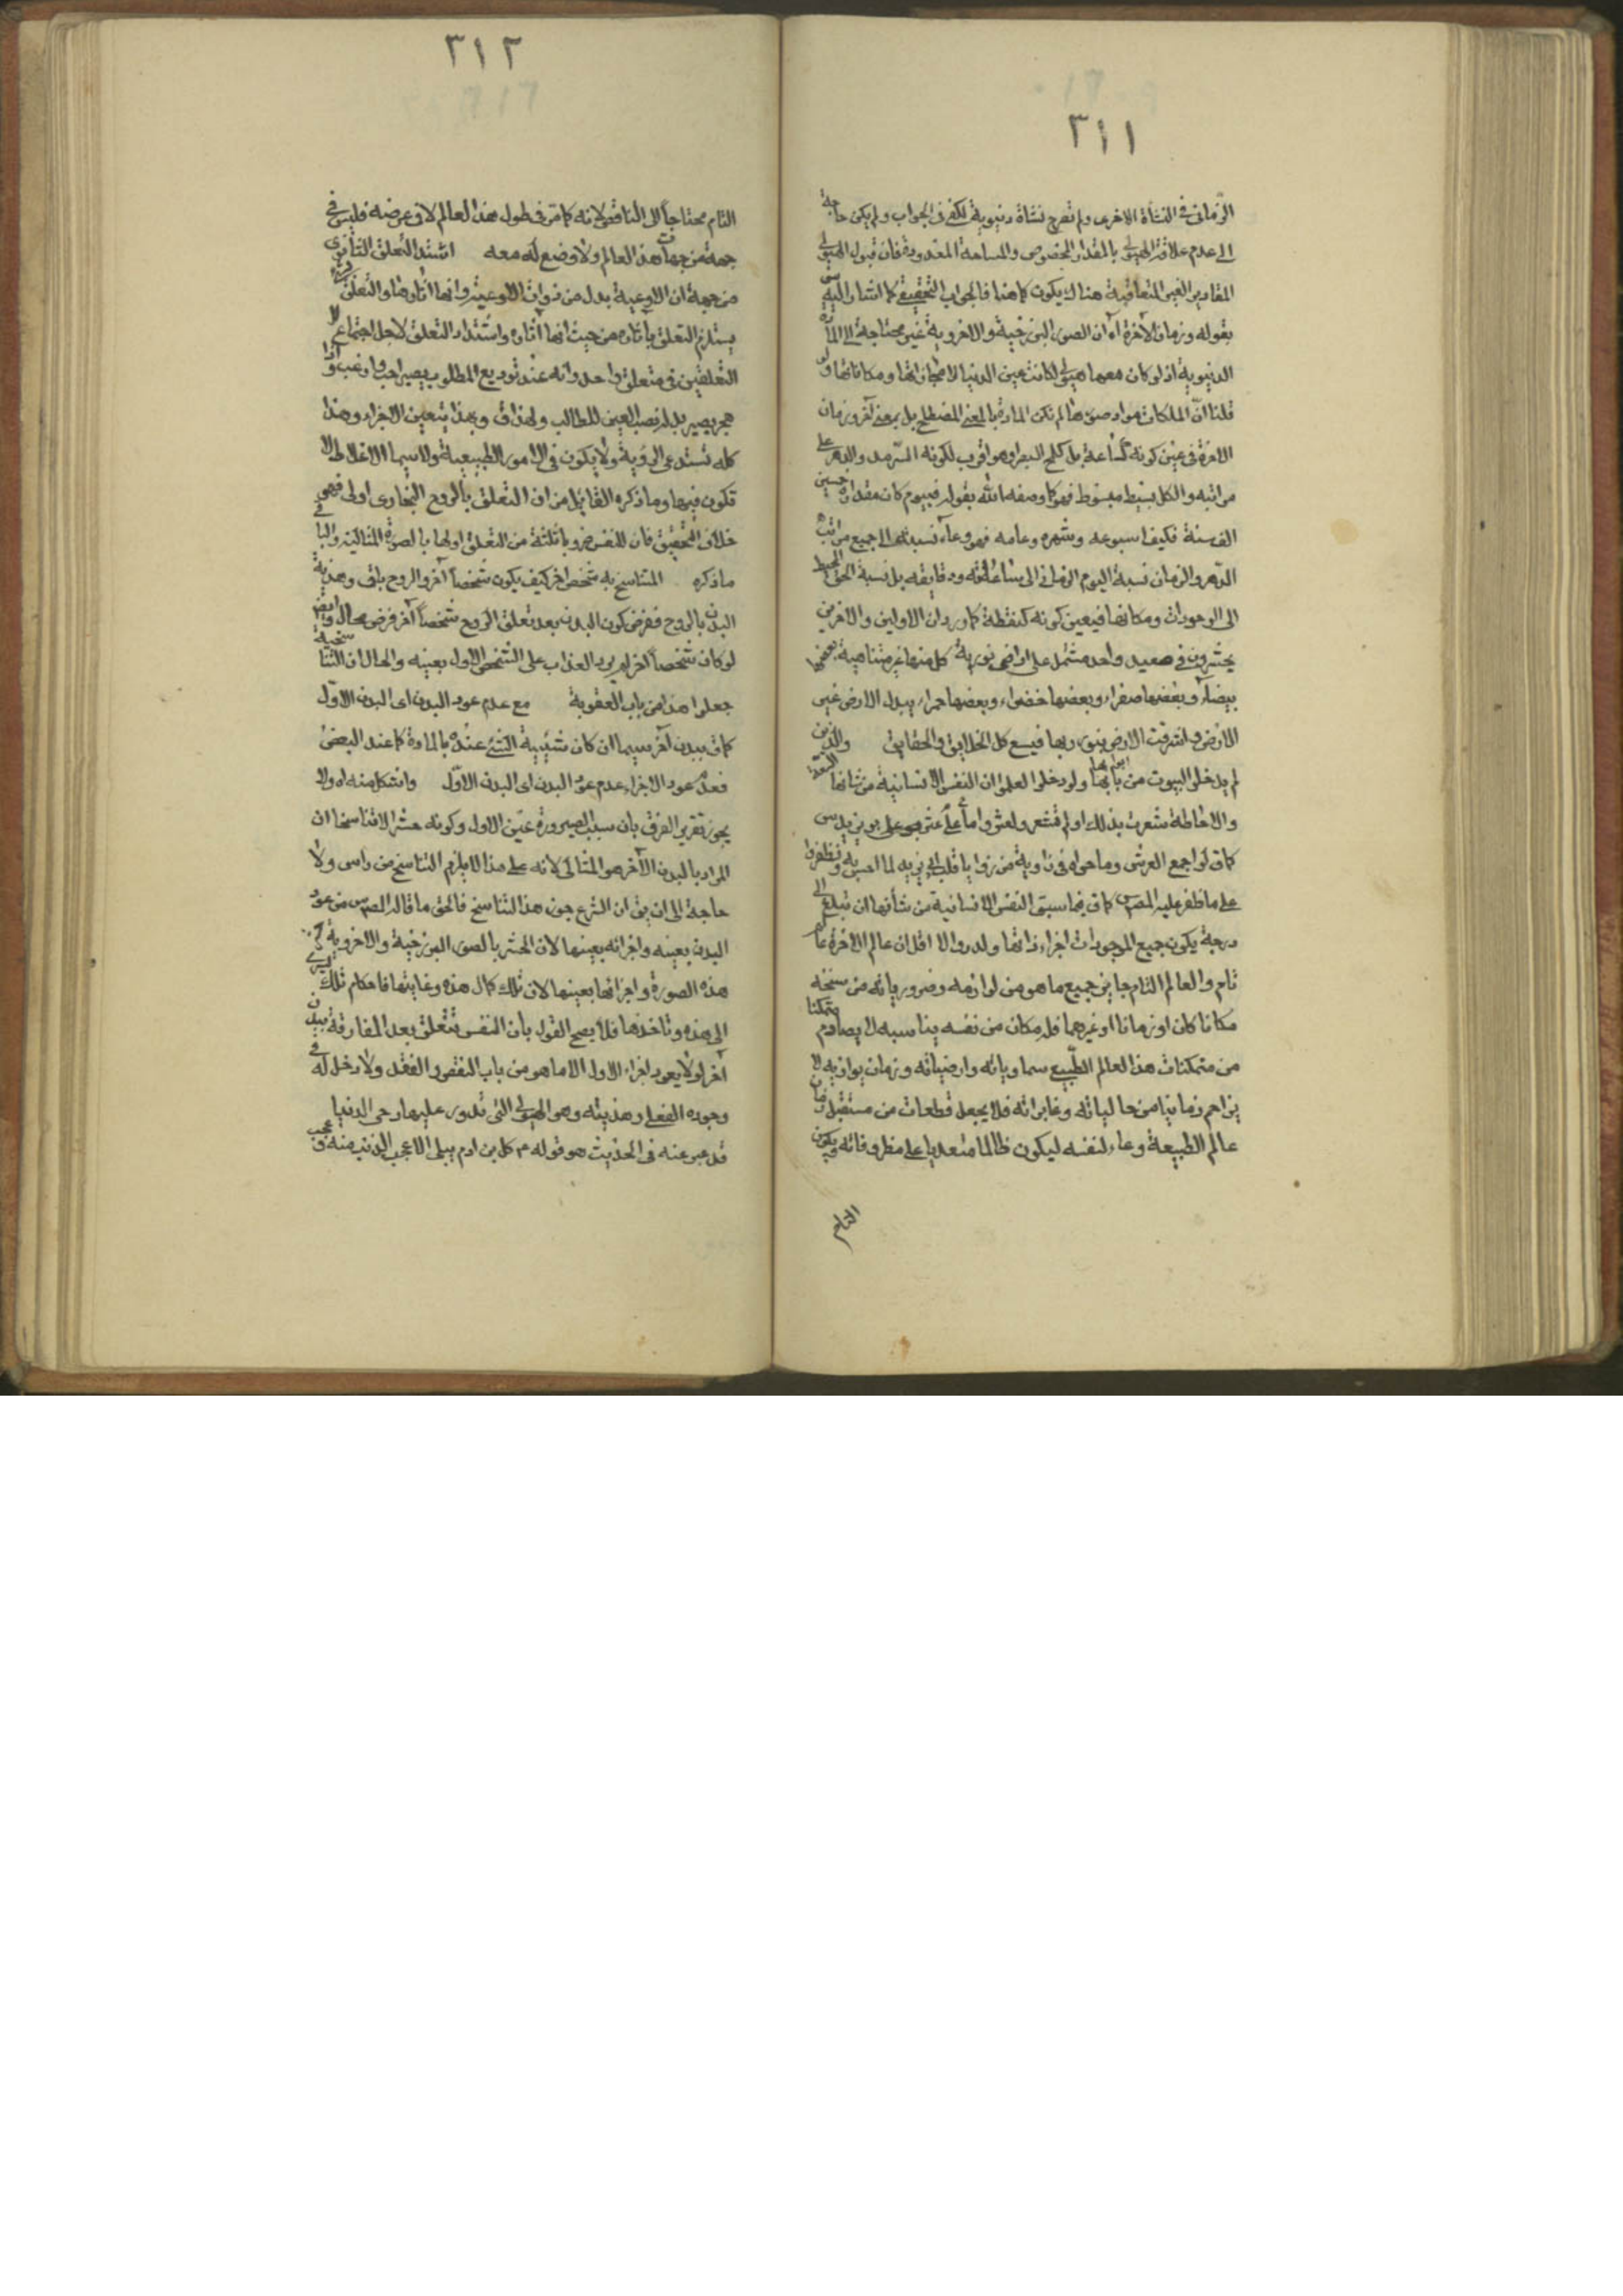 ٣١١
الزمانى فى النشأة الاخرى ولم تصرح نشأة دنيوية لكفى فى الجواب ولم يكن حاجة
الى عدم علاقة الهيولى بالمقدار المخصوص والمساحة المقدودة فان قبول الهيولى
المقادير الغير المتعاقبة هناك يكون كما هنا فالجواب التحقيقى كما اشار اليه
بقوله وزمان الآخرة اه ان الصور البرزخية والاخروية غير محتاجة الى المادة
الدنيوية اذ لو كان معها هيولى لكانت عين الدنيا لاضمحلالها ومكاناتها ولو
قلنا ان الملكات مواد صورها لم تكن المادة بالمعنى المصطلح بل بمعنى آخر وزمان
الاخرة فى عين كونه كساعة بل كلمح البصر او هو اقرب لكونه السرمد والدهر على
مراتبه والكل بسيط مبسوط فهو كما وصفه الله بقوله فى يوم كان مقداره خمسين
الف سنة فكيف اسبوعه وشهره وعامه فهو وعاء نسبته الى جميع مراتب
الدهر والزمان نسبة اليوم الزمانى الى ساعاته ودقايقه بل نسبة الحق المحيط
الى الوجودات ومكانها فى عين كونه كنقطة كما ورد ان الاولين والاخرين
يحشرون فى صعيد واحد مشتمل على اراضى نورية كل منها غير متناهية بعضها
بيضاء وبعضها صفراء وبعضها خضراء وبعضها حمراء يبدل الارض غير
الارض واشرقت الارض بنور ربها فيسع كل الخلايق والحقايق والذين
لم يدخلوا البيوت من ابوابها ولو دخلوا لعلموا ان النفس الانسانية من شانها السعة
والاحاطة شعرت بذلك او لم تشعر ولعثروا ما عثر عليه بويزيد س
كما ق لو اجمع العرش وما حواه فى زاوية من زوايا قلب ابى يزيد لما احس به وظفروا
على ما ظفر عليه المصنف س كما ق فيما سبق النفس الانسانية من شأنها ان تبلغ الى
درجة يكون جميع الموجودات اجزاء ذاتها ولدروا لا اقل ان عالم الاخرة عالم
تام والعالم التام جايز جميع ما هو من لوازمه وضرورياته من سنخه
مكانا كان او زمانا او غيرهما فله مكان من نفسه يناسبه لا يصادم متمكنا
من متمكنات هذا العالم الطبيعى سماوياته وارضياته وزمان يوازيه لا
يزاحم زمانيا من حالياته وغابراته فلا يجعل قطعات من مستقبل زمان
عالم الطبيعة وعاء لنفسه ليكون ظالما متعديا على مظروفاته ويكون
التام
٣١٢
التام محتاجا الى الناقص لانه كما مر فى طول هذا العالم لا فى عرضه فليس فى
جهة من جهات هذا العالم ولا وضع له معه اشتد التعلق الثانوى
من جهة ان الاوعية بدل من ذوات الاوعية وانها اثارها والتعلق
يستلزم التعلق باثاره من حيث انها آثاره واشتداد التعلق لاجل اجتماع
التعلقين فى متعلق واحد وانه عند توديع المطلوب يصير احب وارغب واذا
هجر يصير بدله نصب العين للطالب ولهذا ق وبهذا يتعين الاجزاء وهذا
كله تستدعى الروية ولا يكون فى الامور الطبيعية ولاسيما الاغلاط لا
تكون فيها وما ذكره القائل من ان التعلق بالروح البخارى اولى فهو
خلاف التحقيق فان للنفس ضروبا ثلثة من التعلق اولها بالصورة المثالية والباقى
ما ذكره المتناسخ به شخص اخر كيف يكون شخصا آخر والروح باق وهذية
البدن بالروح ففرض كون البدن بعد تعلق الروح شخصا آخر فرض محال وايضا
لو كان شخصا آخر لم يرد العذاب على الشخص الاول بعينه والحال ان التناسخية
جعلوا هذا من باب العقوبة مع عدم عود البدن اى البدن الاول
كما ق ببدن آخر سيما ان كان شيئية الشئ عنده بالمادة كما عند البعض
فعدم عود الاجزاء عدم عود البدن اى البدن الاول واستشكل منه اه ولا
يجوز تقرير الفرق بان سبب الصيرورة عين الاول وكونه حشرا لا تناسخا ان
المراد بالبدن الآخر هو المثالى لانه على هذا لا يلزم التناسخ من راس ولا
حاجة الى ان يق ان الشرع جوز هذا التناسخ فالحق ما قاله المصنف س من عود
البدن بعينه واجزائه بعينها لان الحشر بالصور البرزخية والاخروية
هذه الصورة واجزائها بعينها لان تلك كمال هذه وغايتها فاحكام تلك تسرى
الى هذه وتاخذها فلا يصح القول بان النفس تتعلق بعد المفارقة ببدن
آخر او لا يعود اجزاء الاول الا ما هو من باب النقص والفقد ولا دخل له فى
وجوده الفعلى وهذيته وهو الهيولى التى تدور عليها رحى الدنيا
قد عبر عنه فى الحديث هو قوله م كل ابن ادم يبلى الا عجب الذنب منه